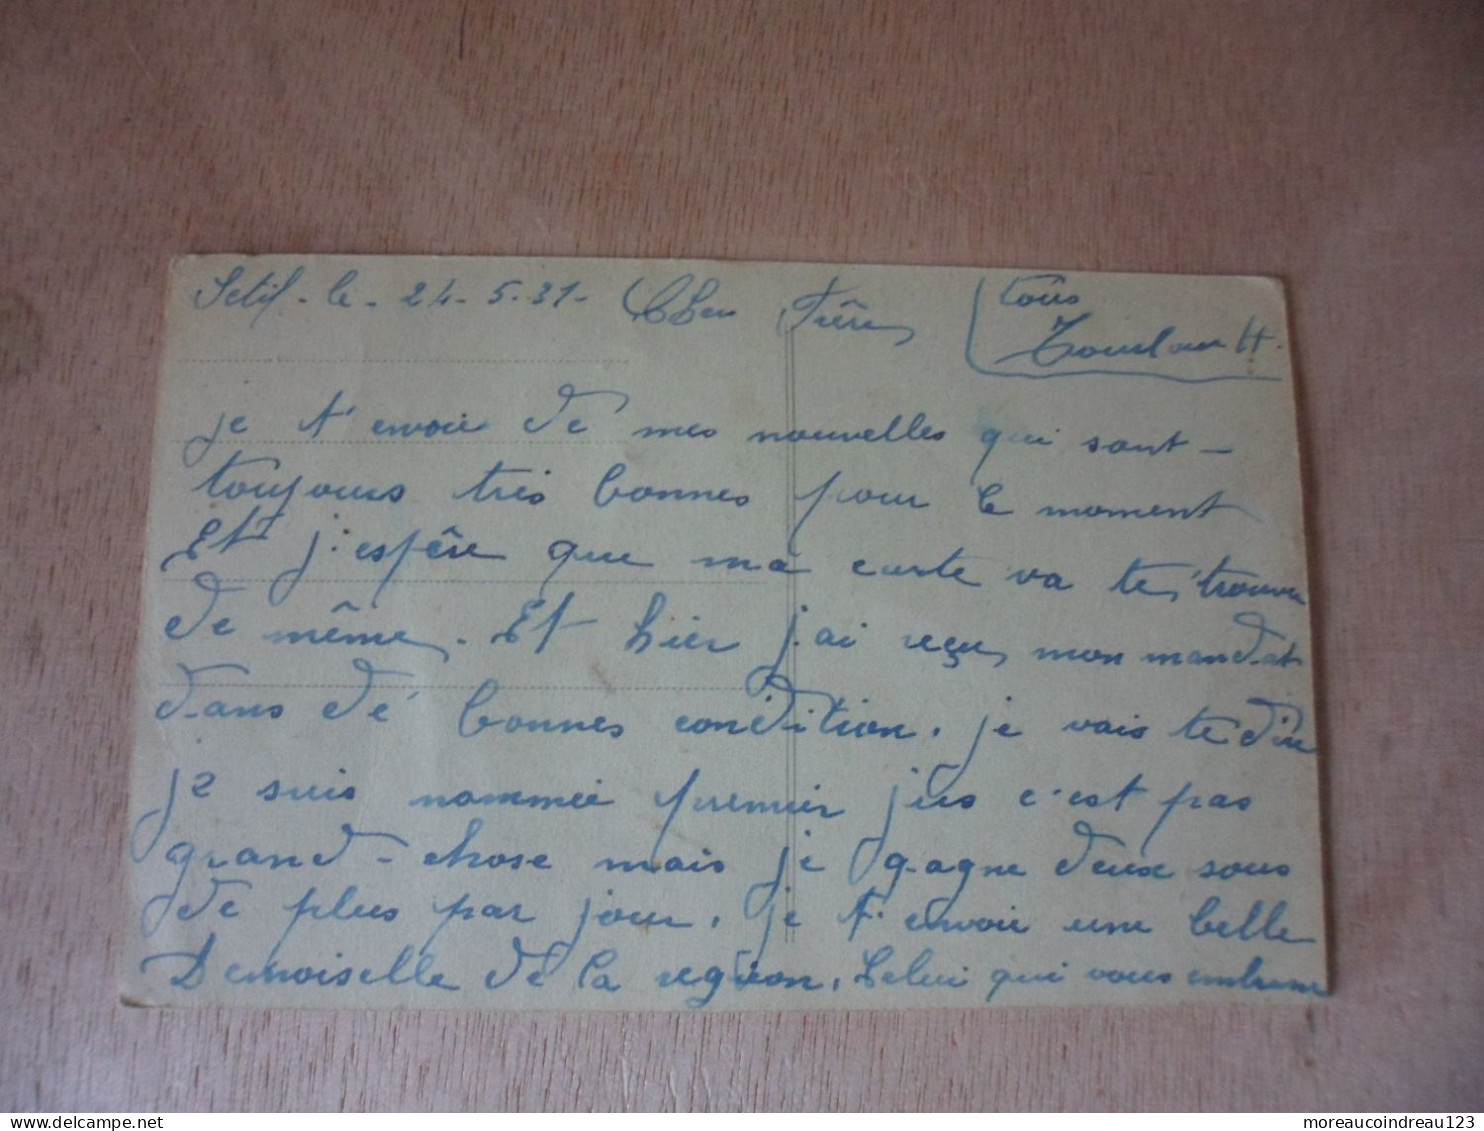 Setif - le - 24 - 5 - 31 - Cher Frère
tous
je t'envoie de mes nouvelles qui sont -
toujours très bonnes pour le moment
Et j'espère que ma carte va te trouver
de même. Et hier j'ai reçu mon mandat
dans dé bonnes condition. je vais te dire
je suis nommée premier jus c'est pas
grand - chose mais je gagne deux sous
de plus par jour. je t'envoie une belle
Demoiselle de la region. Celui qui vous embrasse
moreaucoindreau123